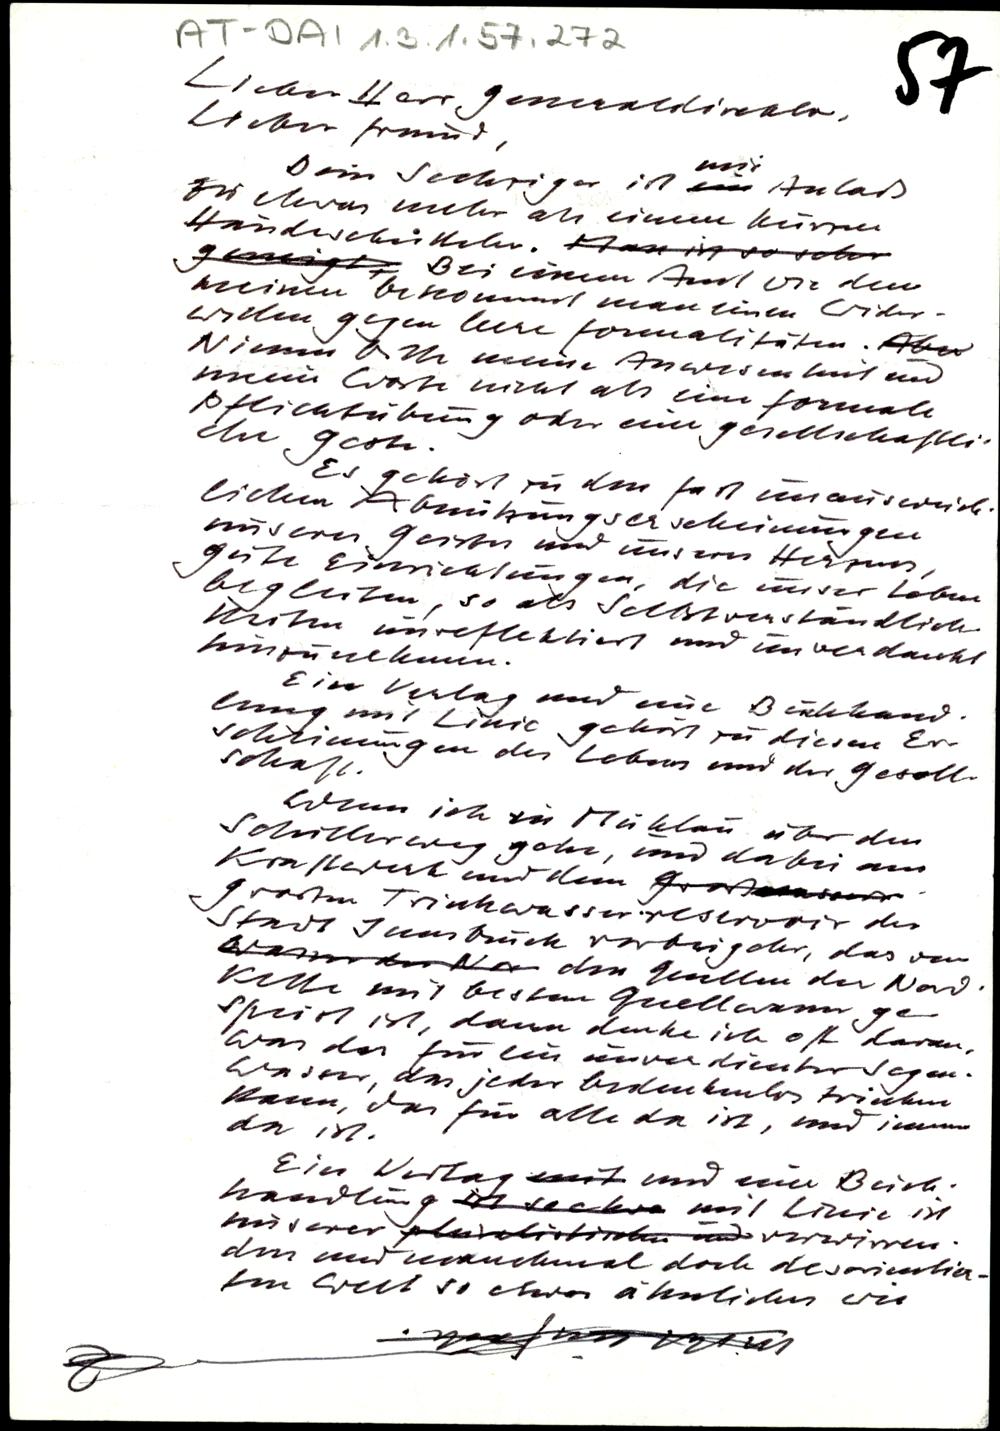 AT-DAI 1.3.1.57.272
57
Lieber Herr Generaldirektor,
Lieber Freund,
Dein Sechziger ist mir ein Anlaß
zu etwas mehr als einem kurzen
Händeschütteln. Man ist so sehr
geneigt, Bei einem Amt wie dem
meinen bekommt man einen Wider-
willen gegen leere Formalitäten. Aber
Nimm bitte meine Anwesenheit und
mein Worte nicht als eine formale
Pflichtübung oder eine gesellschaftli-
che Geste.
Es gehört zu den fast unausweich-
lichen Abnützungserscheinungen
unseres Geistes und unseres Herzens,
gute Einrichtungen, die unser Leben
begleiten, so als Selbstverständlich-
keiten unreflektiert und unverdankt
hinzunehmen.
Ein Verlag und eine Buchhand-
lung mit Linie gehört zu diesen Er-
scheinungen des Lebens und der Gesell-
schaft.
Wenn ich in Mühlau über den
Schillerweg gehe, und dabei am
Kraftwerk und dem Grosswasser-
großen Trinkwasserreservoir der
Stadt Innsbruck vorbeigehe, das von
Wasser der Nor den Quellen der Nord-
kette mit bestem Quellwasser ge-
speist ist, dann denke ich oft daran,
was das für ein unverdienter Segen.
Wasser, das jeder bedenkenlos trinken
kann, das für alle da ist, und immer
da ist.
Ein Verlag mit und eine Buch-
handlung ist sechze mit Linie ist
unserer pluralistischen und verwirren-
den und manchmal doch desorientier-
ten Welt so etwas ähnliches wie